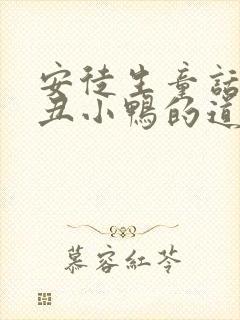 安徒生童話
丑小鴨的道
慕容紅苓